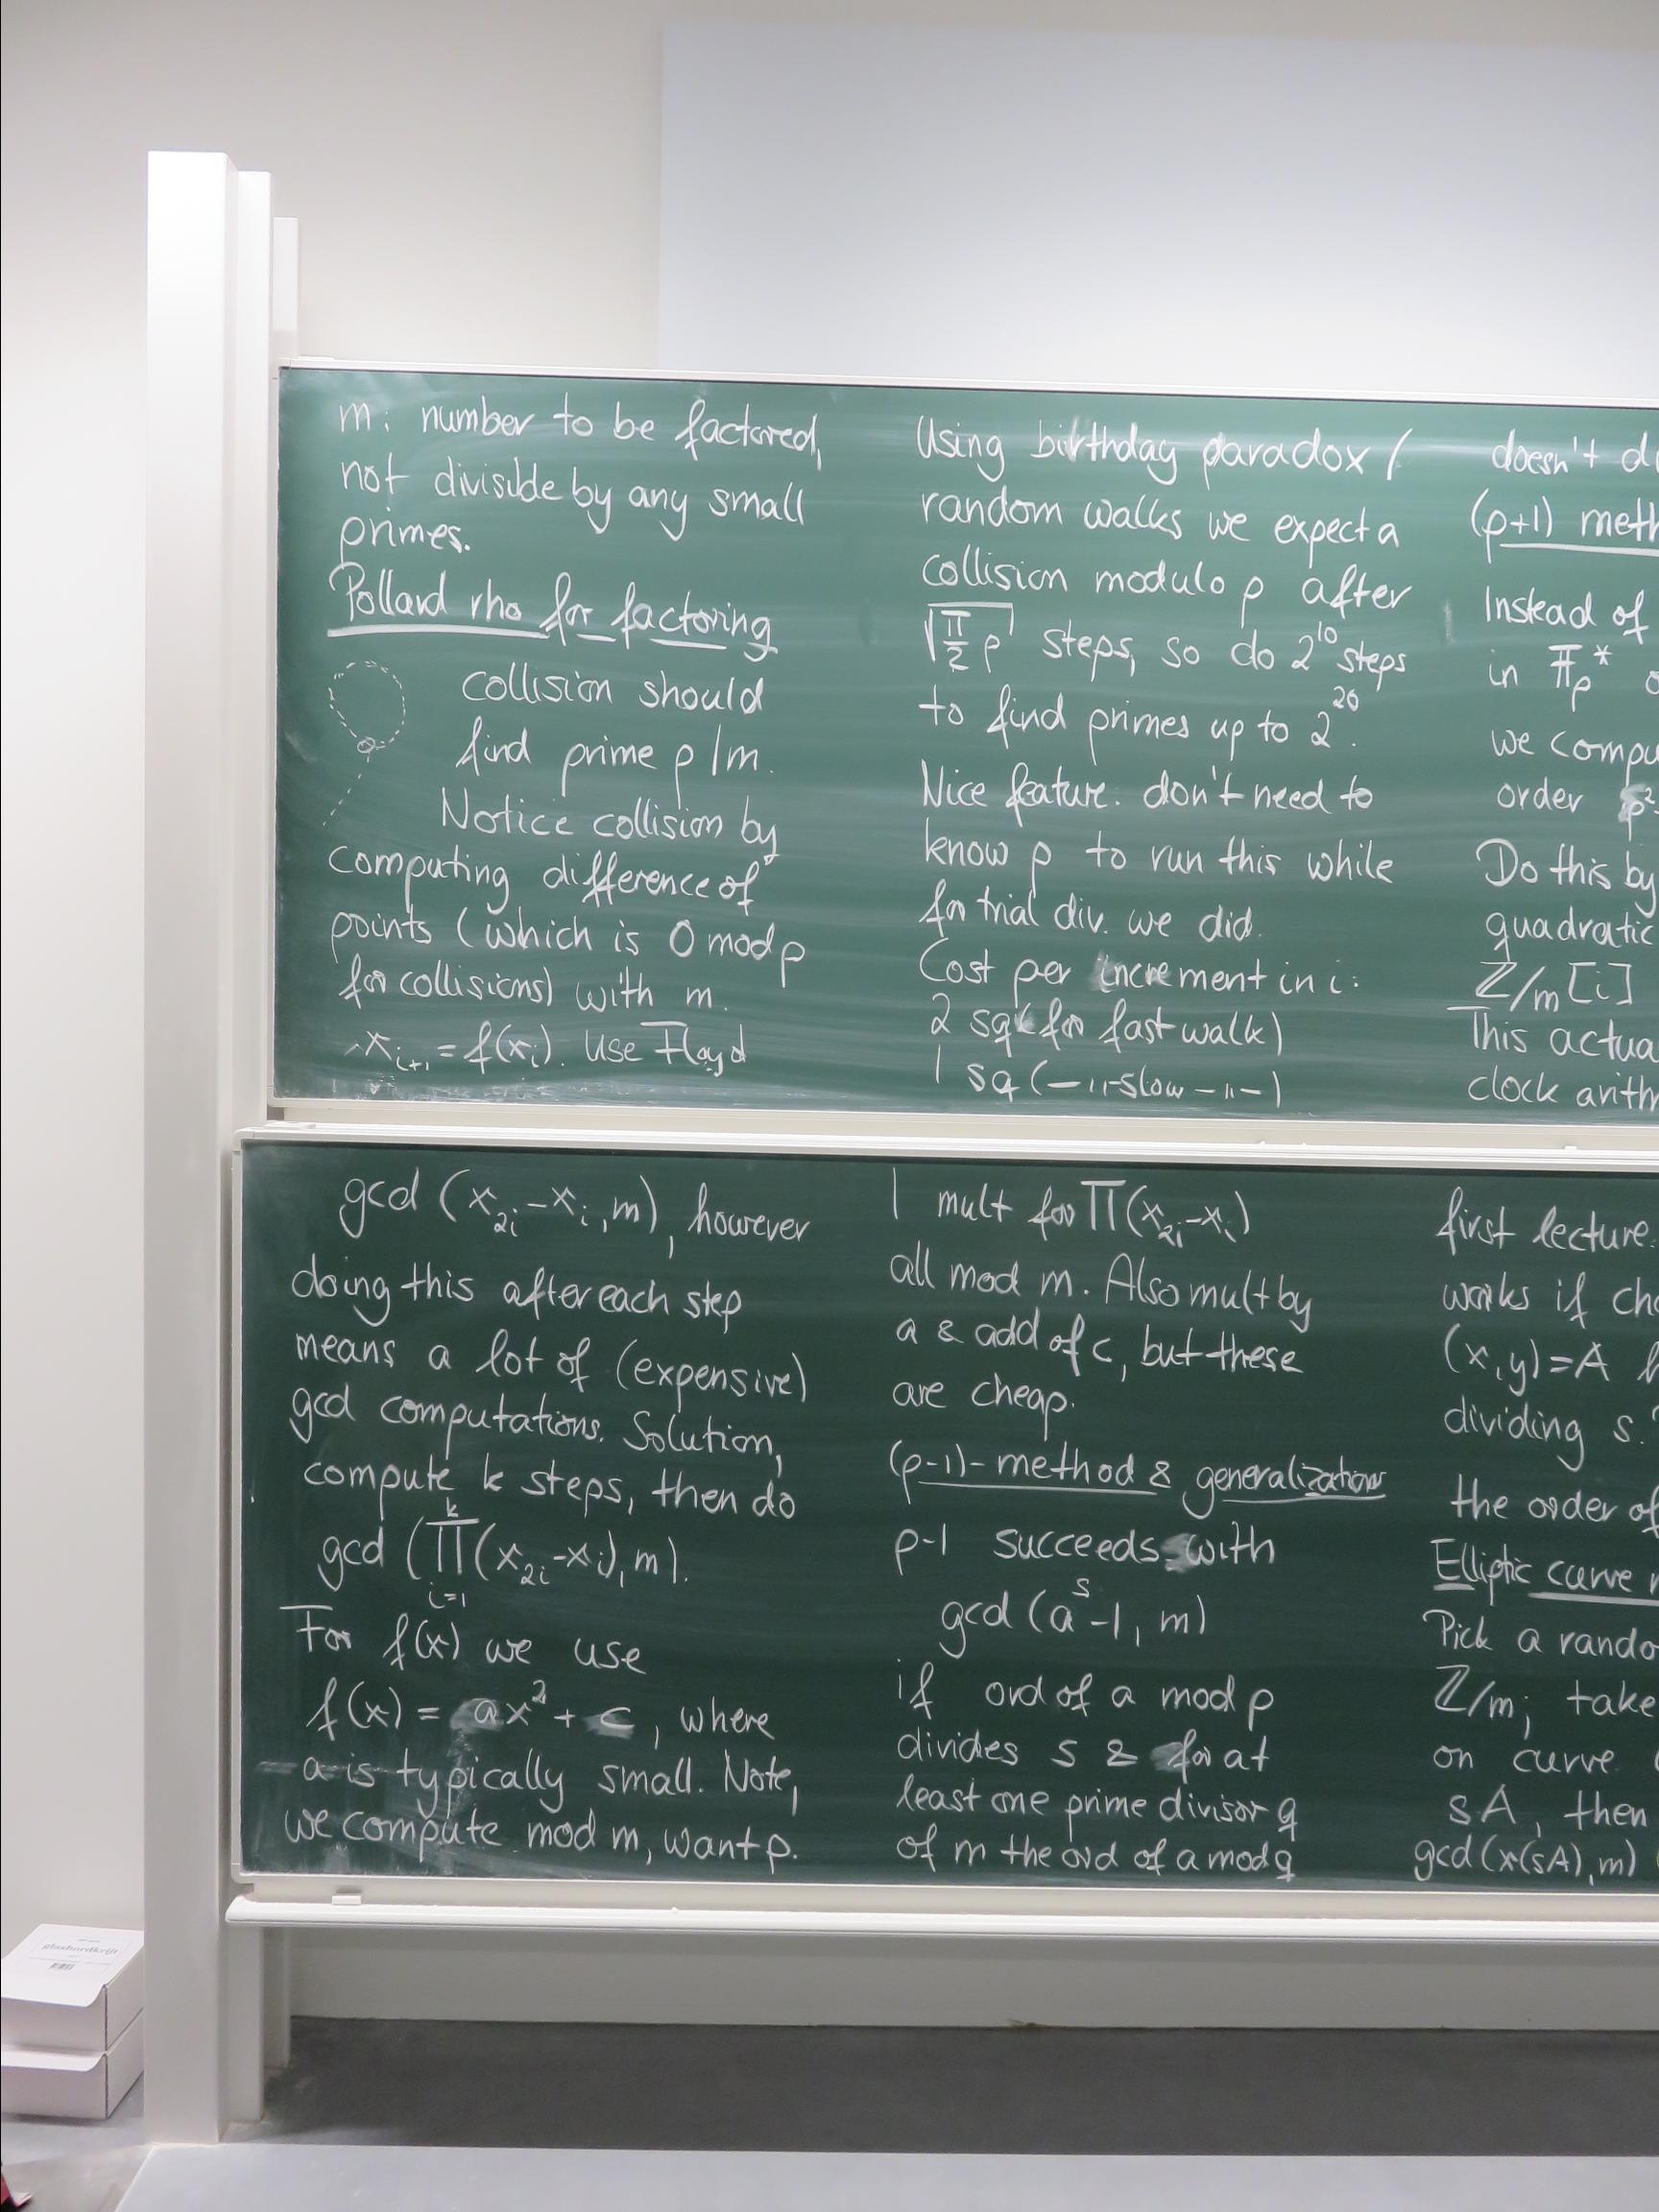 m: number to be factored,
not divisible by any small
primes.
Pollard rho for factoring
collision should
find prime p | m.
Notice collision by
computing difference of
points (which is 0 mod p
for collisions) with m.
x_{i+1} = f(x_i). Use Floyd
gcd (x_{2i} - x_i, m), however
doing this after each step
means a lot of (expensive)
gcd computations. Solution,
compute k steps, then do
gcd (∏_{i=1}^{k} (x_{2i} - x_i), m).
For f(x) we use
f(x) = ax² + c, where
a is typically small. Note,
we compute mod m, want p.
Using birthday paradox /
random walks we expect a
collision modulo p after
√(π/2 p) steps, so do 2^{10} steps
to find primes up to 2^{20}.
Nice feature: don't need to
know p to run this while
for trial div. we did.
Cost per increment in i:
2 sq (for fast walk)
1 sq (–"– slow –"–)
1 mult for ∏(x_{2i} - x_i)
all mod m. Also mult by
a & add of c, but these
are cheap.
(p-1)-method & generalizations
p-1 succeeds with
gcd (a^s - 1, m)
if ord of a mod p
divides s & for at
least one prime divisor q
of m the ord of a mod q
doesn't
(p+1)
Instead of
in F_p*
we
order p²
Do this by
quadratic
Z/m [i]
This
clock
first lecture.
works if
(x,y) = A
dividing s.
the order of
Elliptic curve
Pick a
Z/m; take
on curve
sA, then
gcd (x(sA), m)
glasbordkrijt